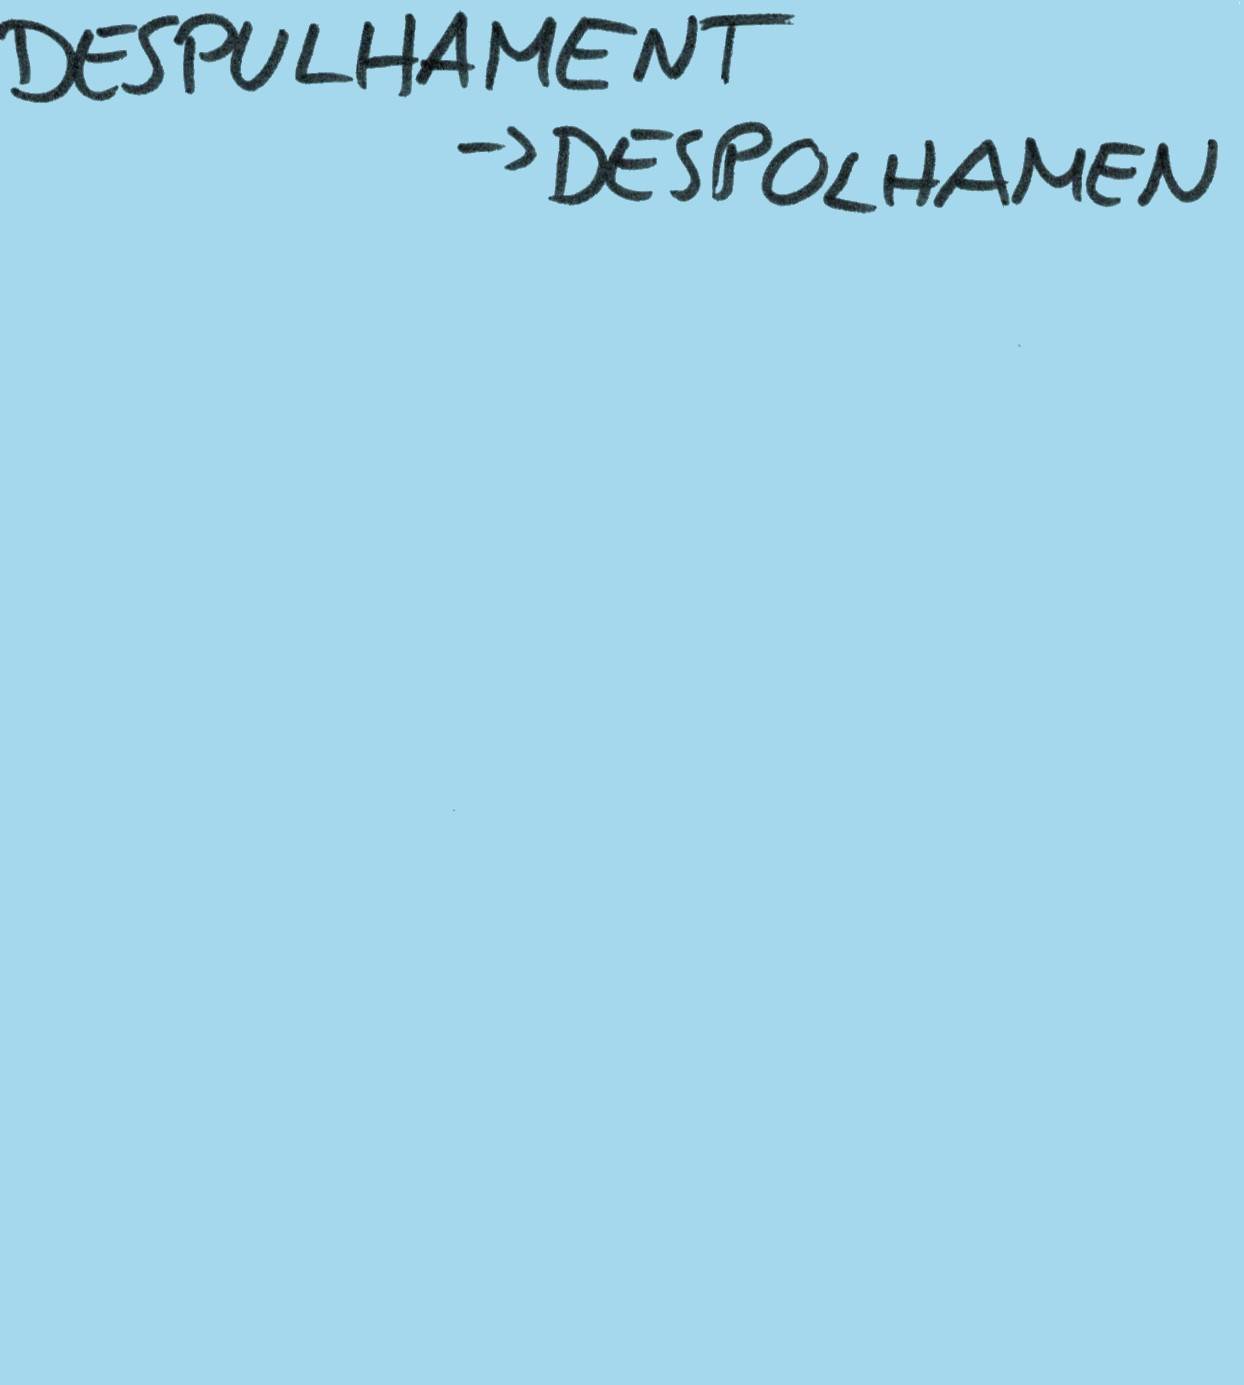 DESPULHAMENT
-> DESPOLHAMEN